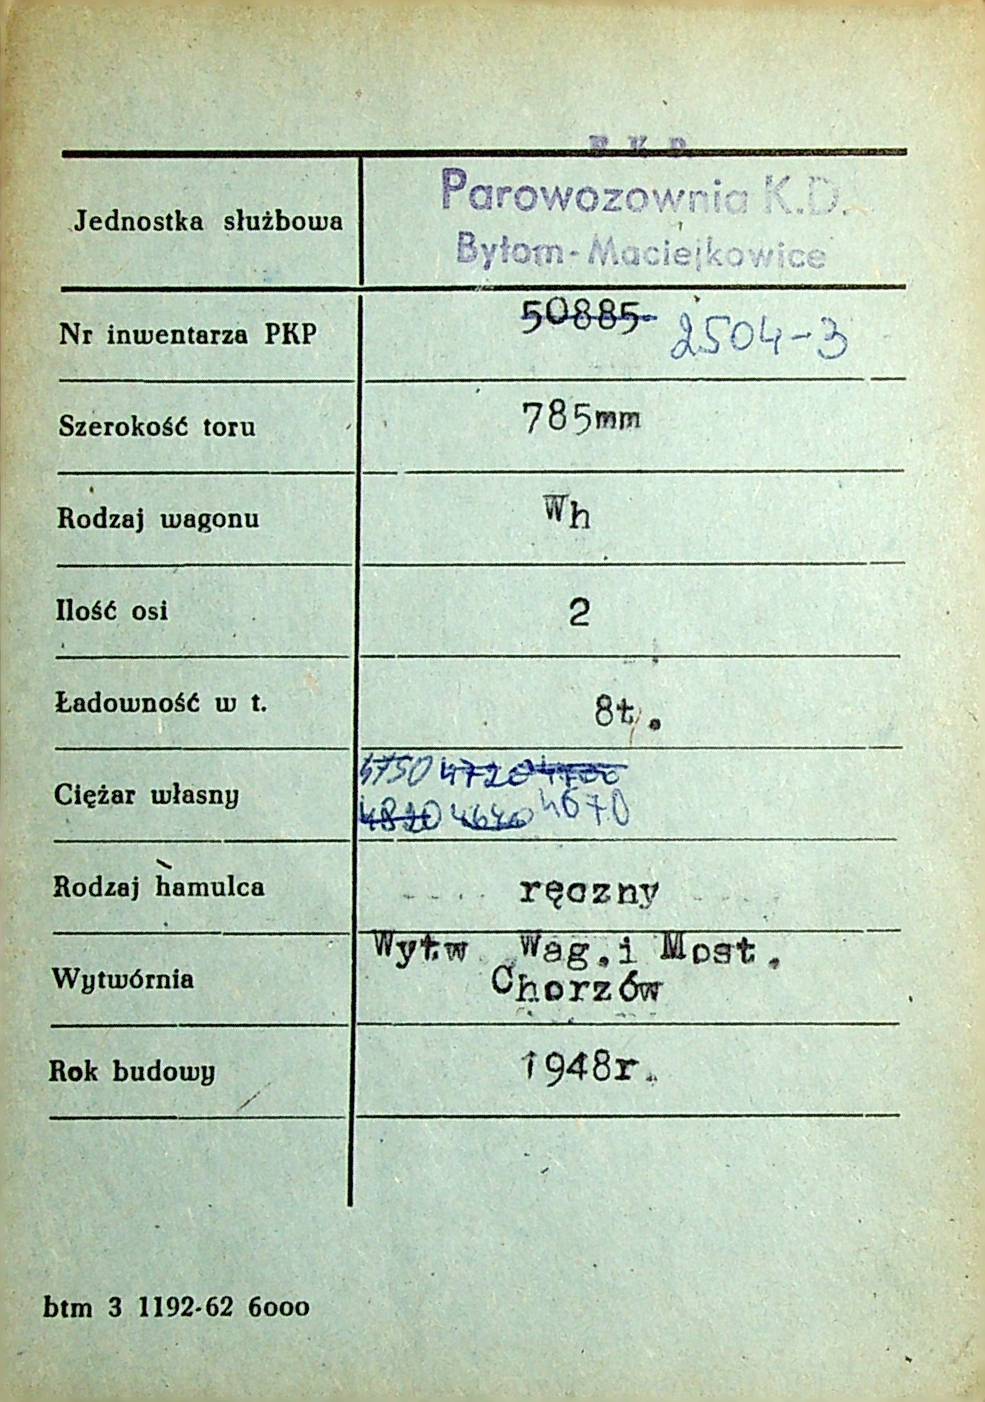 P K P
Jednostka służbowa
Parowozownia K.D.
Bytom-Maciejkowice
Nr inwentarza PKP
50885 2504-3
Szerokość toru
785mm
Rodzaj wagonu
Wh
Ilość osi
2
Ładowność w t.
8t.
Ciężar własny
4750 4720 4700
4820 4640 4670
Rodzaj hamulca
ręczny
Wytwórnia
Wytw Wag.i Most.
Chorzów
Rok budowy
1948r.
btm 3 1192-62 6000